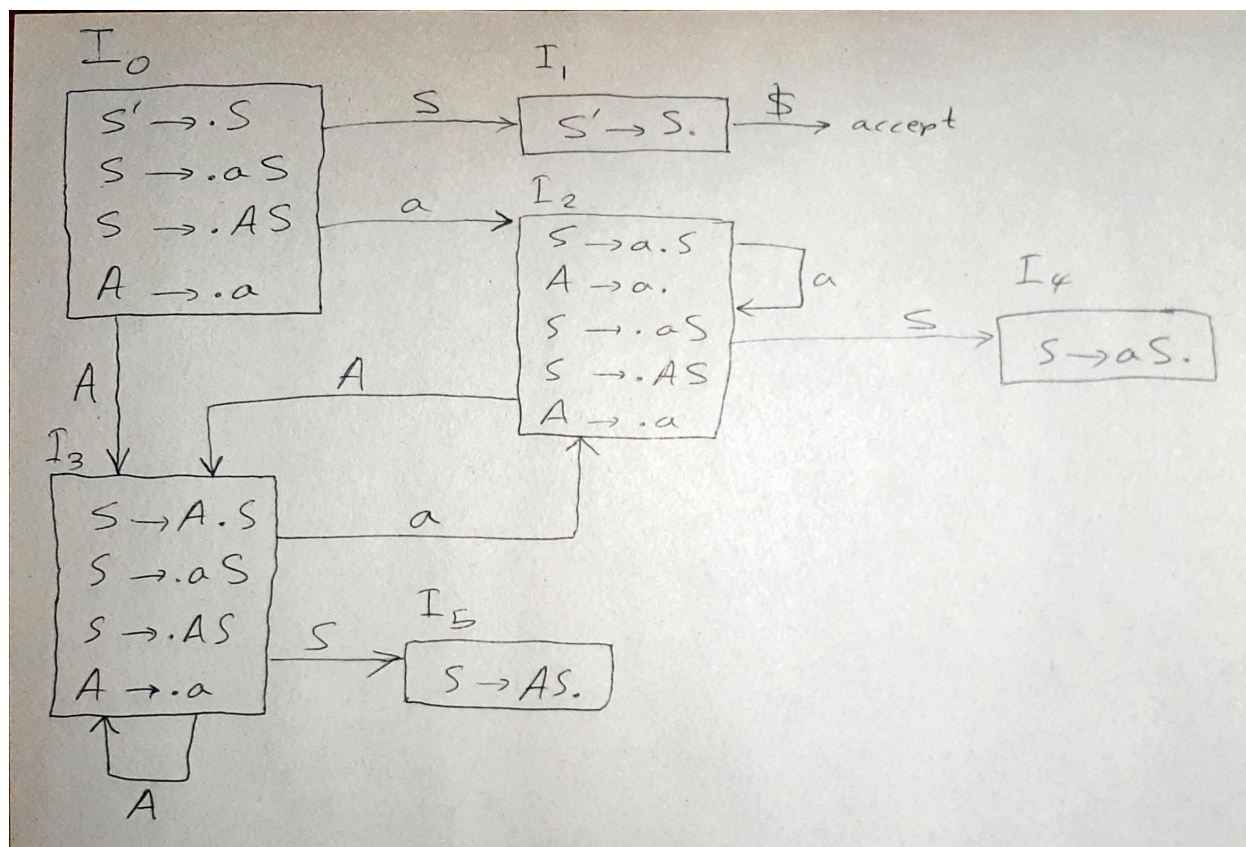 I₀
S' → .S
S → .aS
S → .AS
A → .a
S
I₁
S' → S.
$
accept
a
I₂
S → a.S
A → a.
S → .aS
S → .AS
A → .a
a
S
I₄
S → aS.
A
A
I₃
S → A.S
S → .aS
S → .AS
A → .a
a
S
I₅
S → AS.
A